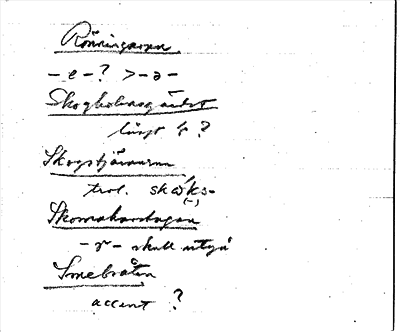 Rönningarna
-e-? >-ə-
Skogbolmsgärdet
långt ? 
Skogstjärnarna
trol. skωks-
(-)
Skomakarstugan
-r- skall utgå
Smebråten
accent ?